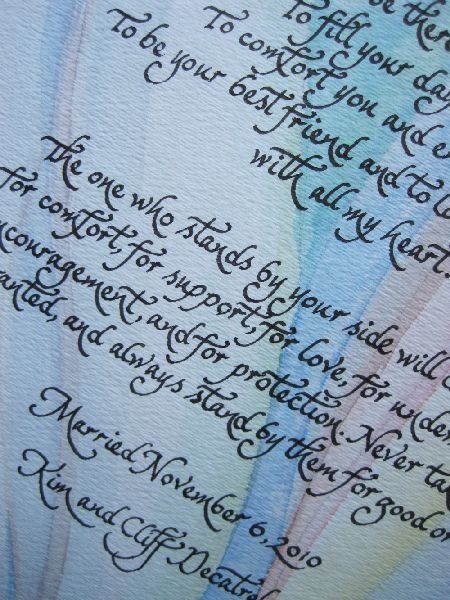 be there
To fill your day
To comfort you and
To be your best friend and to
with all my heart.
the one who stands by your side will
for comfort, for support, for love, for
and for protection. Never
and always stand by them for good or
Married November 6, 2010
Kim and Cliff